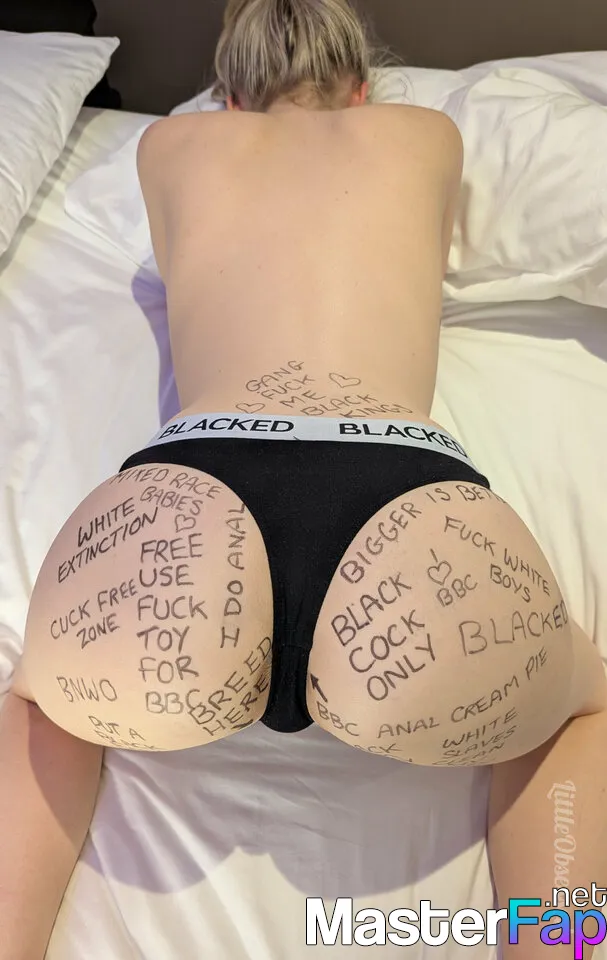 GANG
FUCK
ME
BLACK
KINGS
BLACKED BLACKED
MIXED RACE
BABIES
WHITE
EXTINCTION
FREE
USE
FUCK
TOY
FOR
BBC
I DO ANAL
CUCK FREE
ZONE
BNWO
BREED
HERE
PUT A
BIGGER IS BET
FUCK WHITE
BOYS
I
BBC
BLACK
COCK
ONLY
BLACKED
BBC ANAL CREAM PIE
WHITE
SLAVES
CLEAN
MasterFap
.net